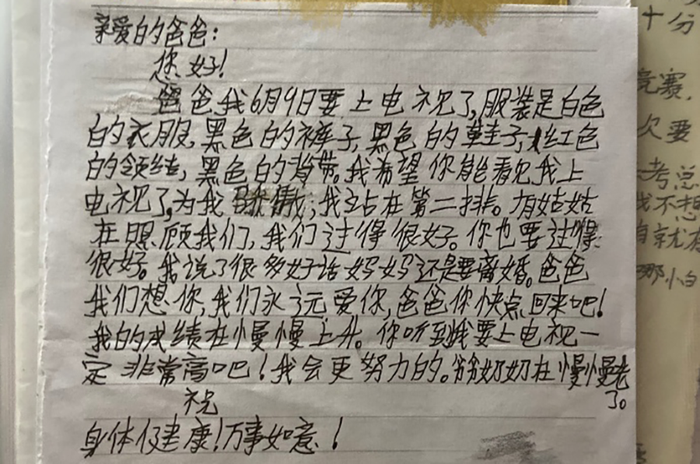 亲爱的爸爸:
您好!
爸爸,我6月9日要上电视了,服装是白色
的衣服,黑色的裤子,黑色的鞋子,红色
的领结,黑色的背带。我希望你能看见我上
电视了,为我骄傲;我站在第二排。有姑姑
在照顾我们,我们过得很好。你也要过得
很好。我说了很多好话妈妈还是要离婚。爸爸
我们想你,我们永远爱你,爸爸你快点回来吧!
我的成绩在慢慢上升。你听到我要上电视一
定非常高吧!我会更努力的。爷爷奶奶在慢慢老
了。
祝
身体健康!万事如意!
十分
竞赛,
次要
考总
我不想
自就
那小白